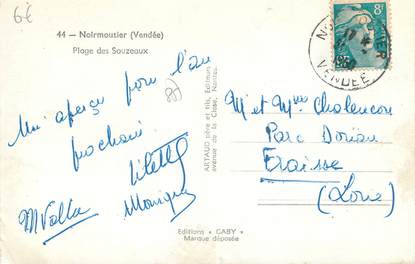 6€
44 — Noirmoutier (Vendée)
Plage des Souzeaux
(85)
Un aperçu pour l'an
prochain
Monique
ARTAUD père et fils, Editeurs
avenue de la Close, Nantes
Editions « GABY »
Marque déposée
8F
VENDÉE
M et Mme Chalencon
Parc Dorian
Fraisse
(Loire)